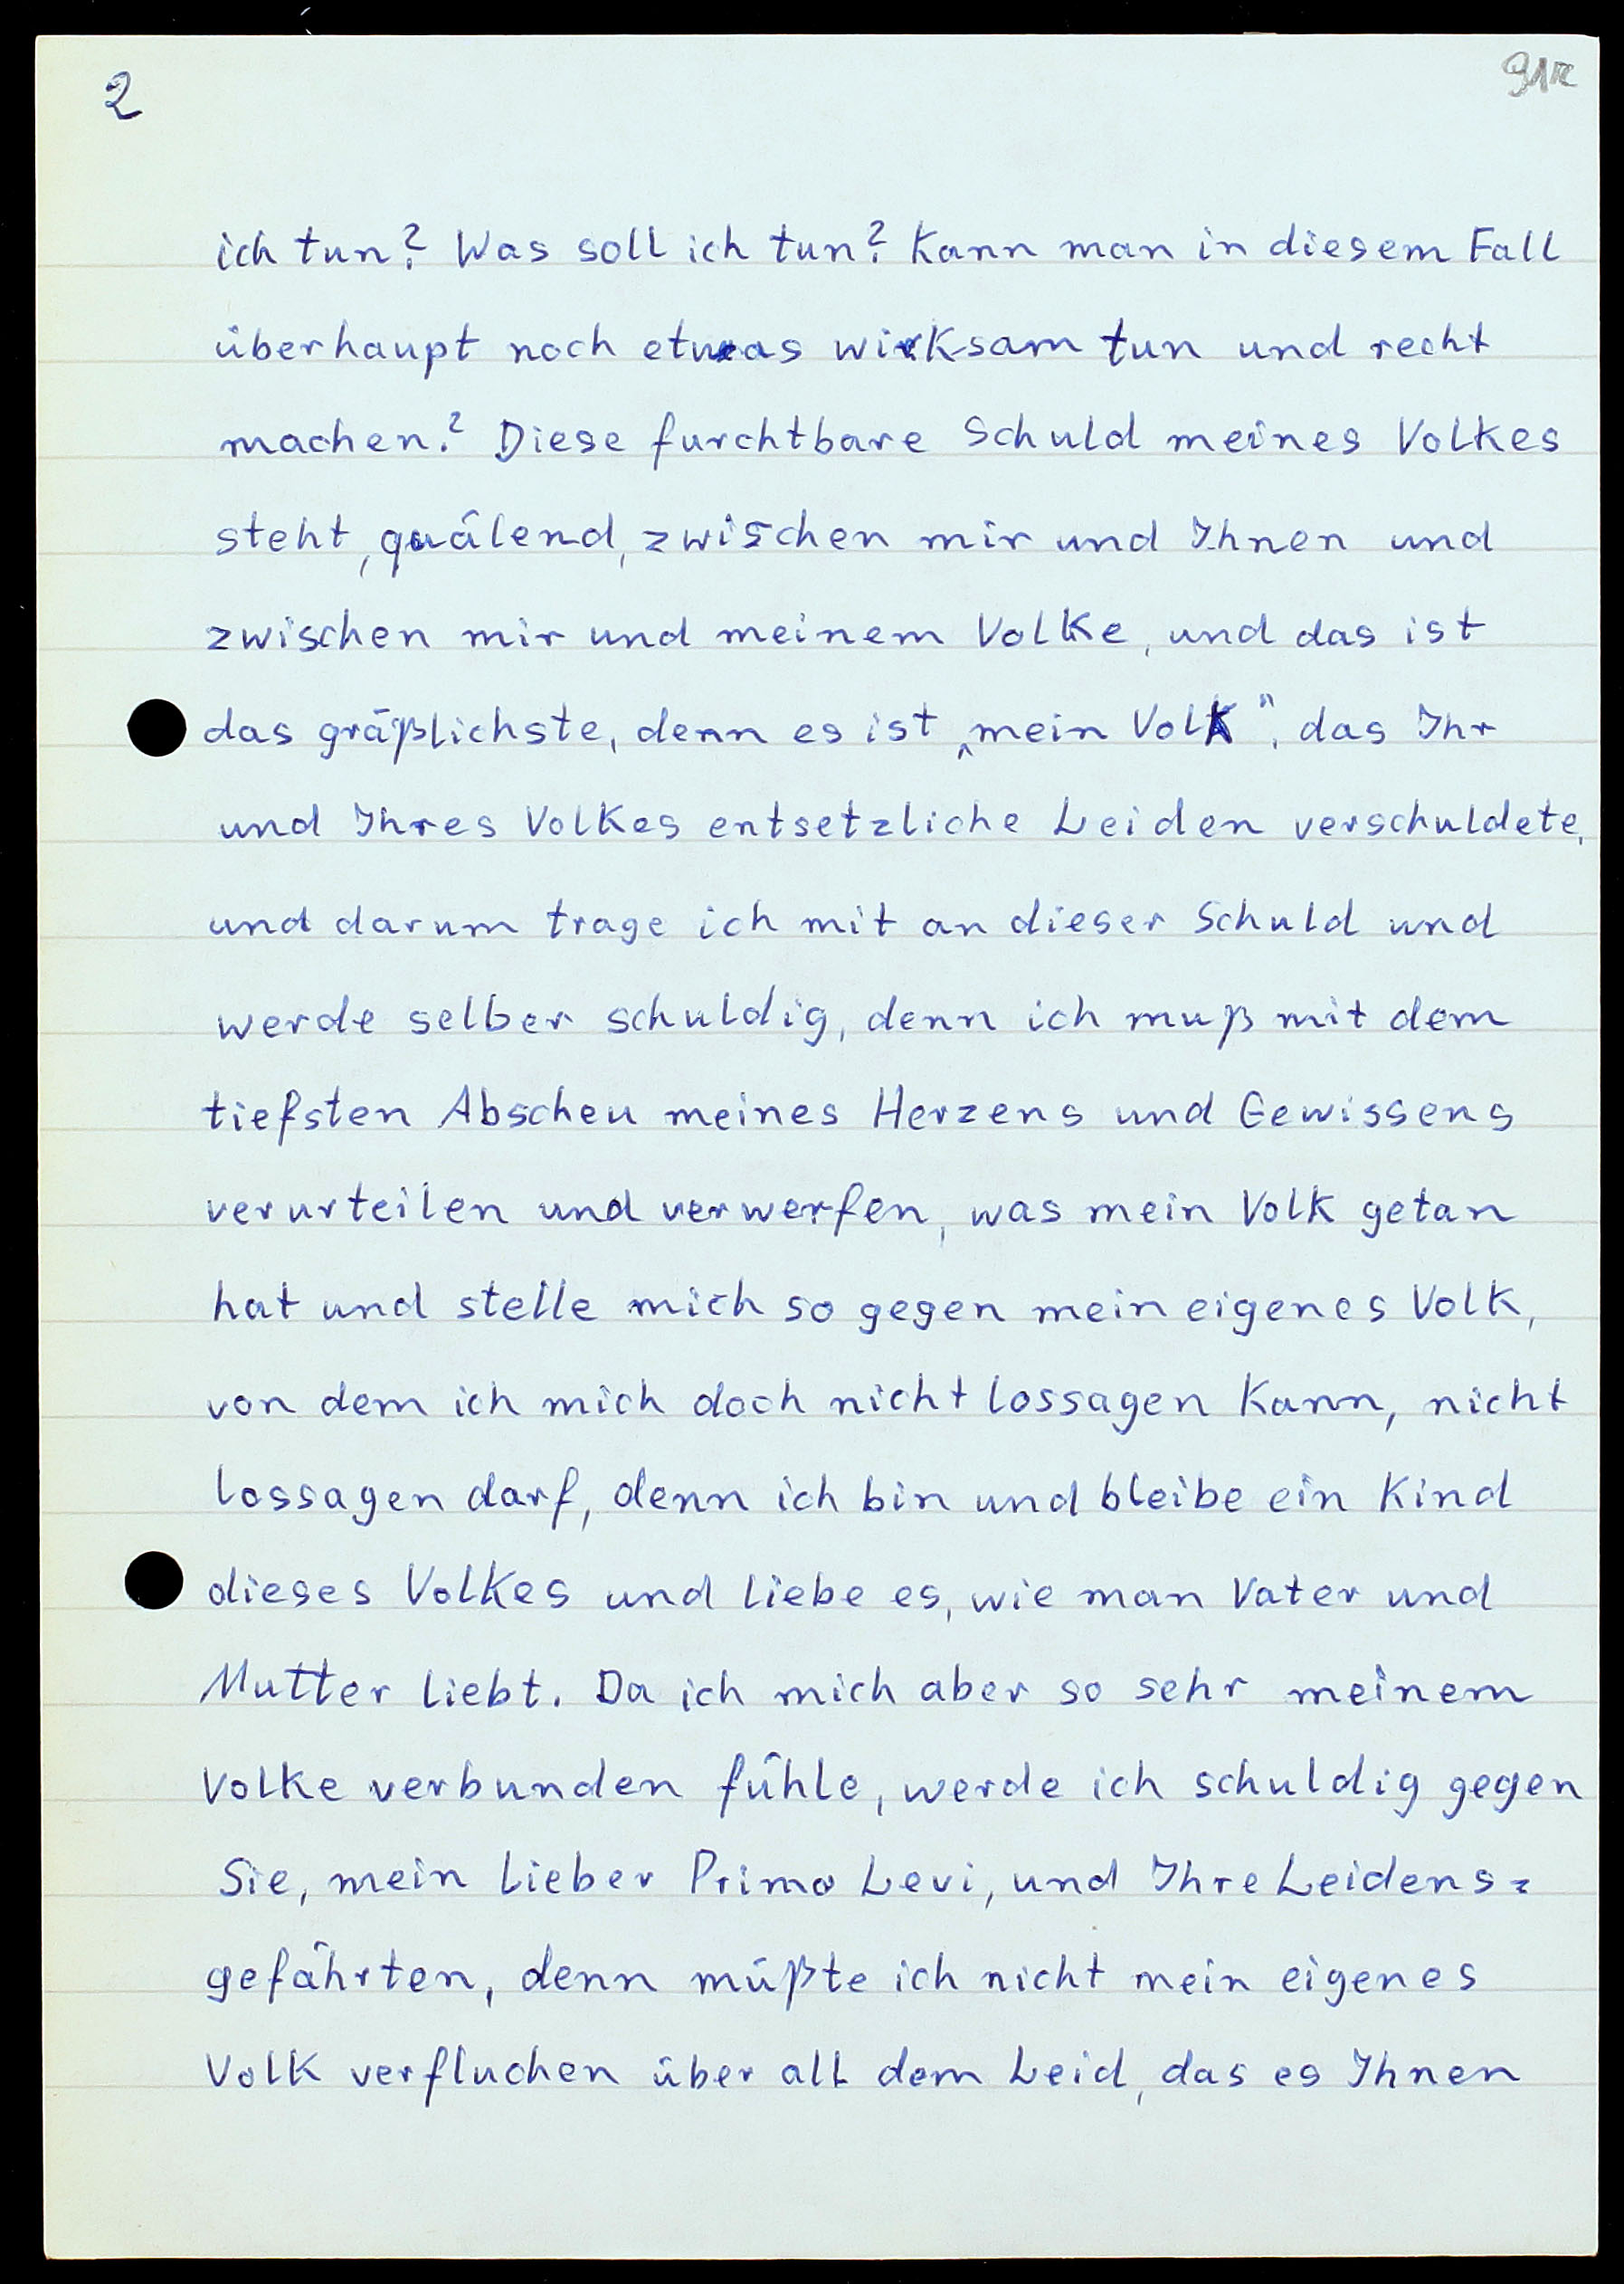 2
91r
ich tun? Was soll ich tun? Kann man in diesem Fall
überhaupt noch etwas wirksam tun und recht
machen? Diese furchtbare Schuld meines Volkes
steht, quälend, zwischen mir und Ihnen und
zwischen mir und meinem Volke, und das ist
das gräßlichste, denn es ist „mein Volk", das Ihr
und Ihres Volkes entsetzliche Leiden verschuldete,
und darum trage ich mit an dieser Schuld und
werde selber schuldig, denn ich muß mit dem
tiefsten Abscheu meines Herzens und Gewissens
verurteilen und verwerfen, was mein Volk getan
hat und stelle mich so gegen mein eigenes Volk,
von dem ich mich doch nicht lossagen kann, nicht
lossagen darf, denn ich bin und bleibe ein Kind
dieses Volkes und liebe es, wie man Vater und
Mutter liebt. Da ich mich aber so sehr meinem
Volke verbunden fühle, werde ich schuldig gegen
Sie, mein lieber Primo Levi, und Ihre Leidens=
gefährten, denn müßte ich nicht mein eigenes
Volk verfluchen über all dem Leid, das es Ihnen